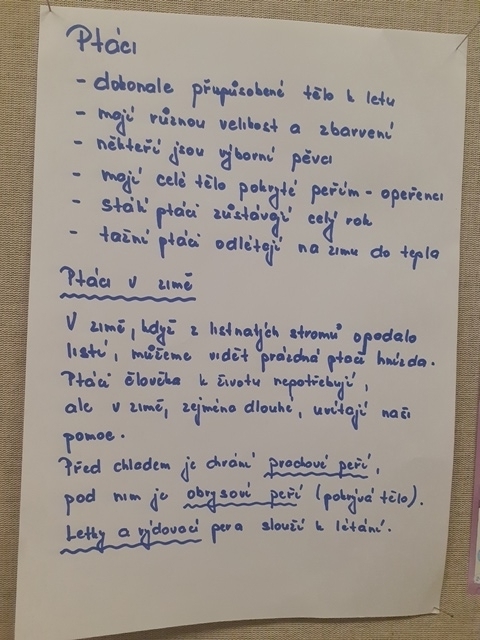 Ptáci
- dokonale přizpůsobené tělo k letu
- mají různou velikost a zbarvení
- někteří jsou výborní pěvci
- mají celé tělo pokryté peřím - opeřenci
- stálí ptáci zůstávají celý rok
- tažní ptáci odlétají na zimu do tepla
Ptáci v zimě
V zimě, když z listnatých stromů opadalo
listí, můžeme vidět prázdná ptačí hnízda.
Ptáci člověka k životu nepotřebují,
ale v zimě, zejména dlouhé, uvítají naši
pomoc.
Před chladem je chrání prachové peří,
pod ním je obrysové peří (pokrývá tělo).
Letky a rýdovací pera slouží k létání.